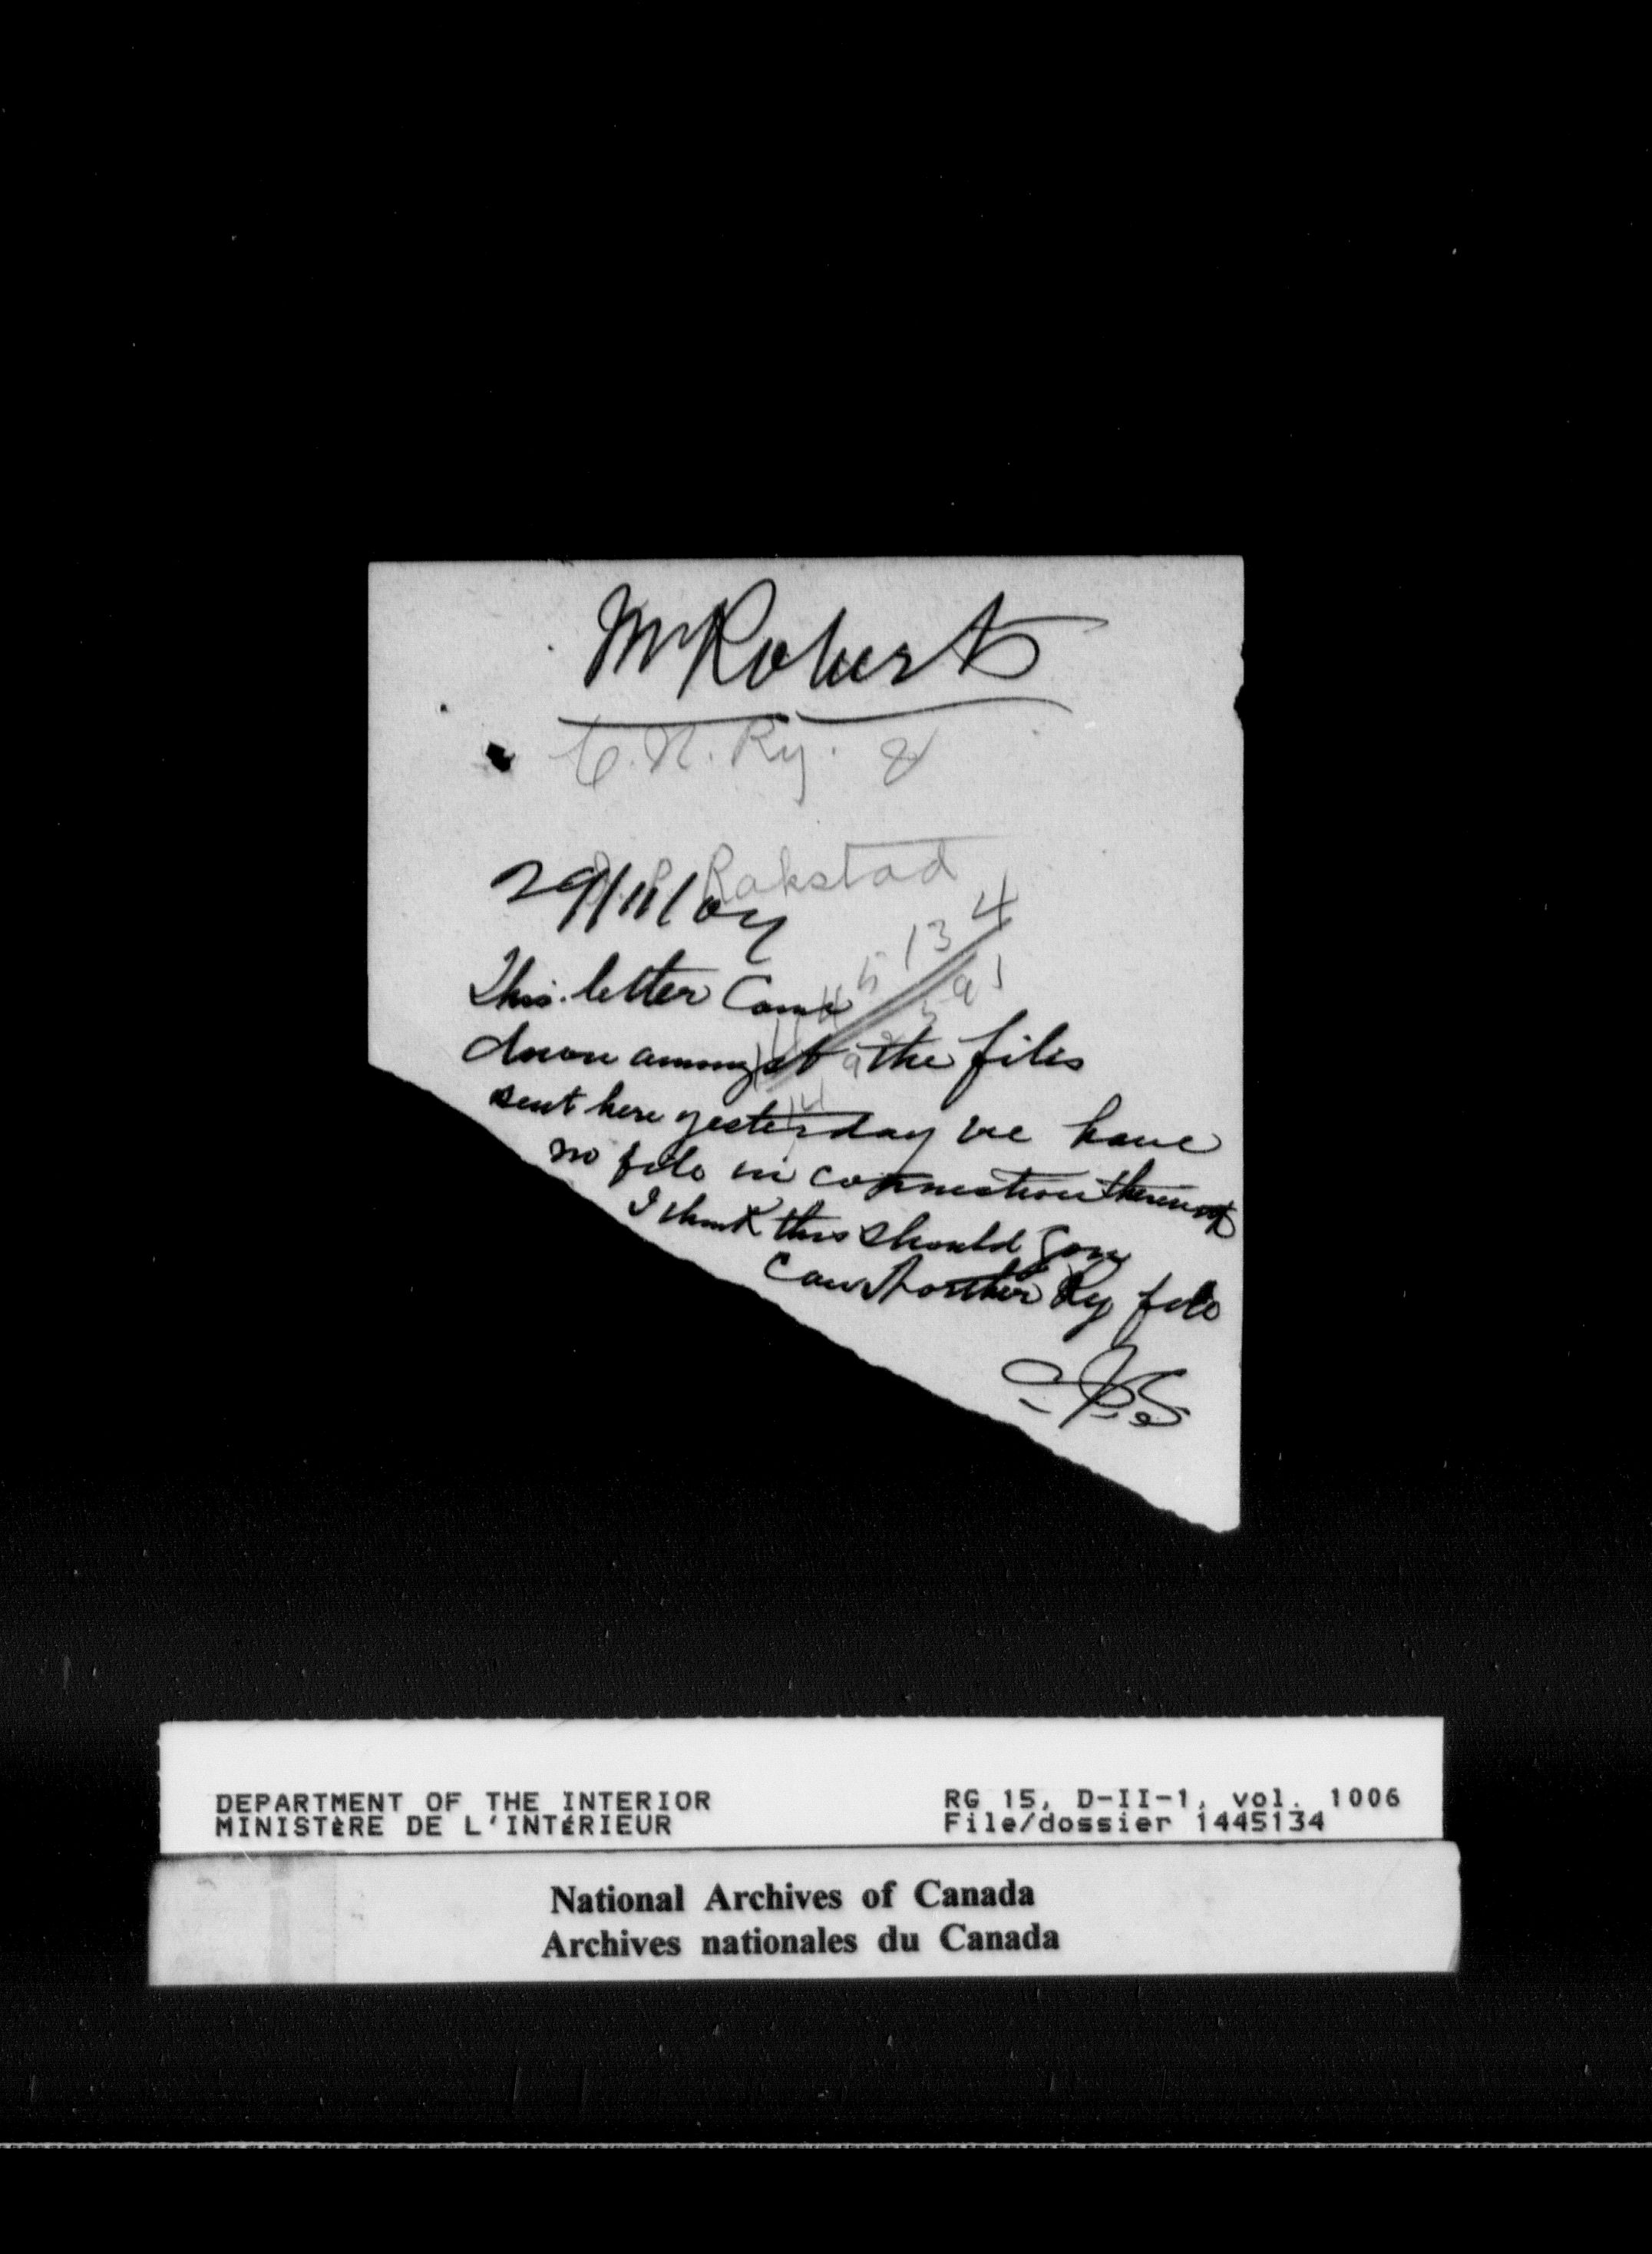 Mr Roberts
C. N. Ry. &
Rokstad
29/11/07
This letter Came
down amongst the files
sent here yesterday we have
no file in connection therewith
I think this should go on
Can Northern Ry file
DEPARTMENT OF THE INTERIOR
MINISTÈRE DE L'INTÉRIEUR
RG 15, D-II-1, vol. 1006
File/dossier 1445134
National Archives of Canada
Archives nationales du Canada